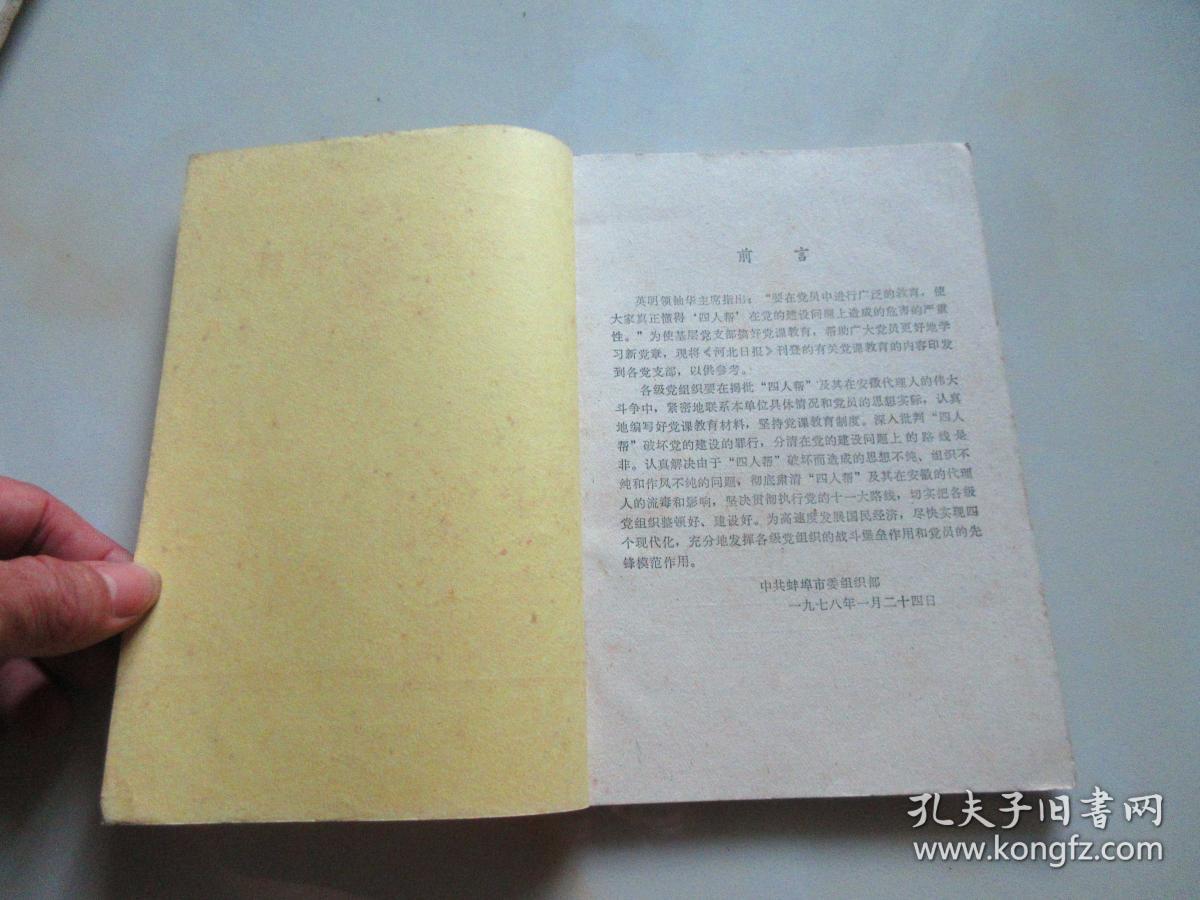 前 言
英明领袖华主席指出：“要在党员中进行广泛的教育，使
大家真正懂得‘四人帮’在党的建设问题上造成的危害的严重
性。”为使基层党支部搞好党课教育，帮助广大党员更好地学
习新党章，现将《河北日报》刊登的有关党课教育的内容印发
到各党支部，以供参考。
各级党组织要在揭批“四人帮”及其在安徽代理人的伟大
斗争中，紧密地联系本单位具体情况和党员的思想实际，认真
地编写好党课教育材料，坚持党课教育制度。深入批判“四人
帮”破坏党的建设的罪行，分清在党的建设问题上的路线是
非。认真解决由于“四人帮”破坏而造成的思想不纯、组织不
纯和作风不纯的问题，彻底肃清“四人帮”及其在安徽的代理
人的流毒和影响，坚决贯彻执行党的十一大路线，切实把各级
党组织整顿好、建设好。为高速度发展国民经济，尽快实现四
个现代化，充分地发挥各级党组织的战斗堡垒作用和党员的先
锋模范作用。
中共蚌埠市委组织部
一九七八年一月二十四日
孔夫子旧书网
www.kongfz.com